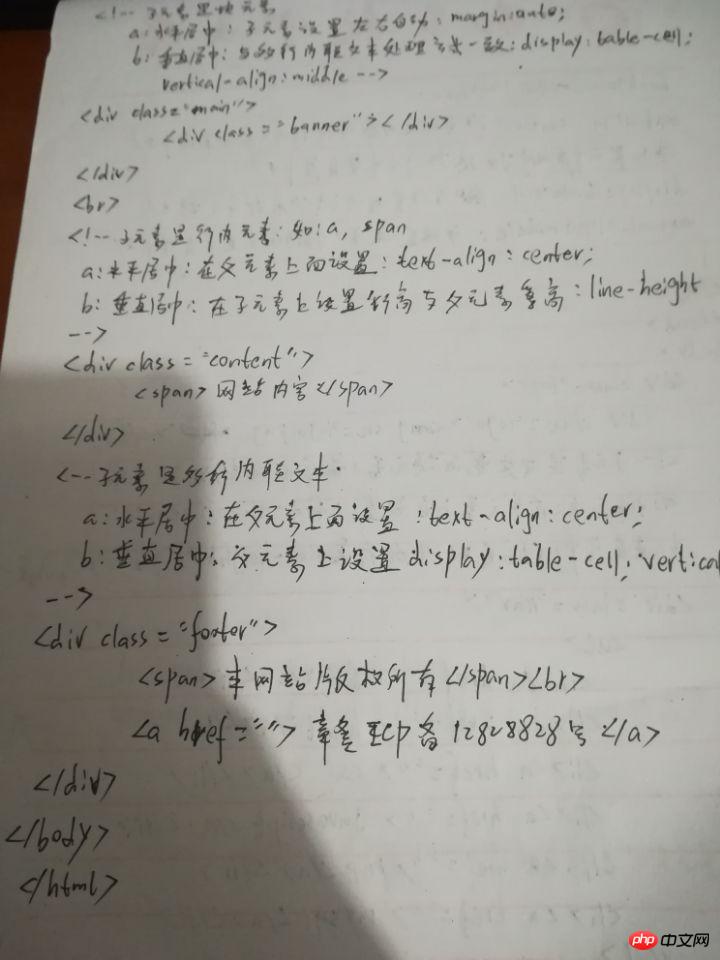 <!-- 子元素是块元素
a: 水平居中: 子元素设置左右自动: margin:auto;
b: 垂直居中: 与多行内联文本处理方式一致: display: table-cell;
vertical-align: middle -->
<div class="main">
<div class="banner"></div>
</div>
<br>
<!-- 子元素是行内元素: 如: a, span
a: 水平居中: 在父元素上面设置: text-align: center;
b: 垂直居中: 在子元素上设置行高与父元素等高: line-height
-->
<div class="content">
<span>网站内容</span>
</div>
<-- 子元素是多行内联文本.
a: 水平居中: 在父元素上面设置: text-align: center;
b: 垂直居中: 父元素上设置display: table-cell; vertical
-->
<div class="footer">
<span>本网站版权所有</span><br>
<a href="">icp备12828828号</a>
</div>
</body>
</html>
php 中文网